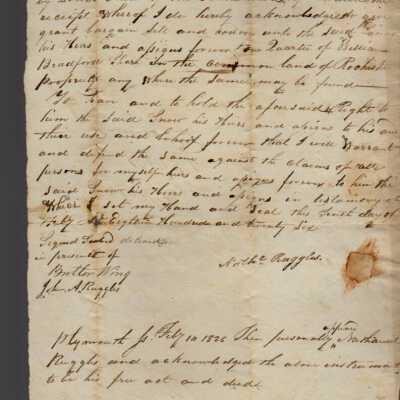 receipt whereof I do hereby acknowledge do give
grant bargain sell and convey unto the said Snow
his Heirs and assigns forever one Quarter of William
Bradford Share in the common land of Rochester
propriety any where the same may be found
To Have and to hold the aforesaid Right to
him the said Snow his Heirs and assigns to his and
their use and behoof forever that I will Warrant
and defend the same against the claims of all
persons for myself heirs and assigns forever to him the
said Snow his Heirs and assigns in testimony of
Where I set my Hand and Seal this first day of
Feby Eighteen Hundred and twenty Six
Signed Sealed delivered
in presents of
Butler Wing
John A Ruggles
Nathl Ruggles
Plymouth Ss. Feby 10 1826 Then personally appeared Nathaniel
Ruggles and acknowledged the above instrument
to be his free act and deed